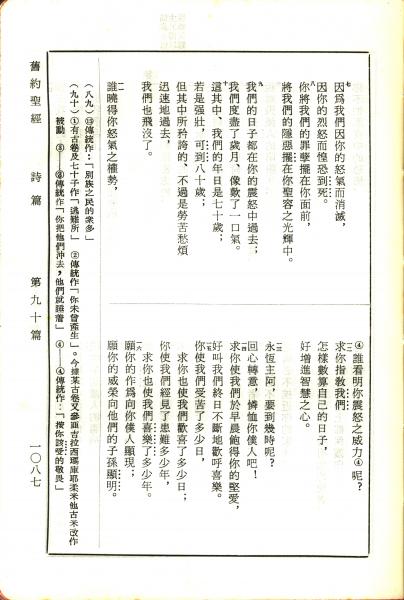 七 因爲我們因你的怒氣而消滅，
因你的烈怒而惶恐到死。
八 你將我們的罪孽擺在你面前，
將我們的隱惡擺在你聖容之光輝中。
九 我們的日子都在你的震怒中過去；
我們度盡了歲月、像歎了一口氣。
十 這其中、我們的年日是七十歲；
若是强壯，可到八十歲；
但其中所矜誇的、不過是勞苦愁煩
迅速地過去，
我們也飛沒了。
一一 誰曉得你怒氣之權勢，
④誰看明你震怒之威力④呢？
一二 求你指敎我們
怎樣數算自己的日子，
好增進智慧之心。
一三 永恆主阿，要到幾時呢？
回心轉意，憐恤你僕人吧！
一四 求你使我們於早晨飽得你的堅愛，
好叫我們終日不斷地歡呼喜樂。
一五 你使我們受苦了多少日，
求你也使我們歡喜了多少日；
你使我們經見了患難多少年，
求你也使我們喜樂了多少年。
一六 願你的作爲向你僕人顯現；
願你的威榮向他們的子孫顯明。
（八九）⑬傳統作：「別族之民的衆多」
（九十）①有古卷及七十子作「逃難所」 ②傳統作「你未曾產生」。今據某古卷又參亞吉拉西瑪庫耶柔米他古米改作
被動 ③——③傳統作「你把他們沖去，他們就睡着」 ④——④傳統作：「按你該受的敬畏」
舊約聖經 詩篇 第九十篇 一〇八七